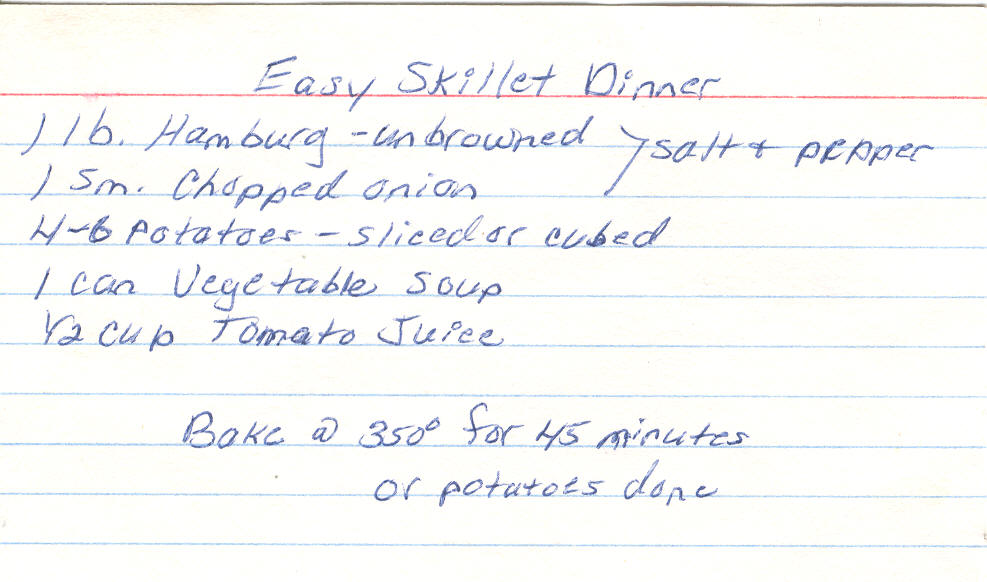 Easy Skillet Dinner
1 lb. Hamburg - unbrowned > salt & pepper
1 sm. Chopped onion
4-6 Potatoes - sliced or cubed
1 can Vegetable Soup
1/2 cup Tomato Juice
Bake @ 350° for 45 minutes
or potatoes done